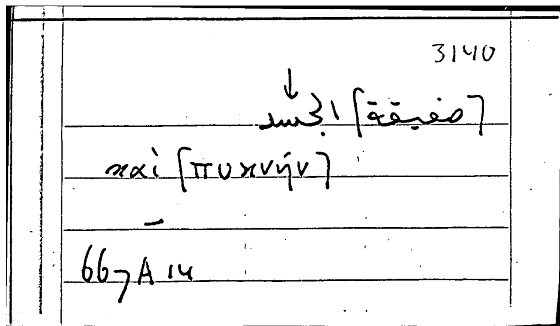 3140
↓
[صفيقة] الجسد
καὶ [πυκνήν]
–
667 A 14